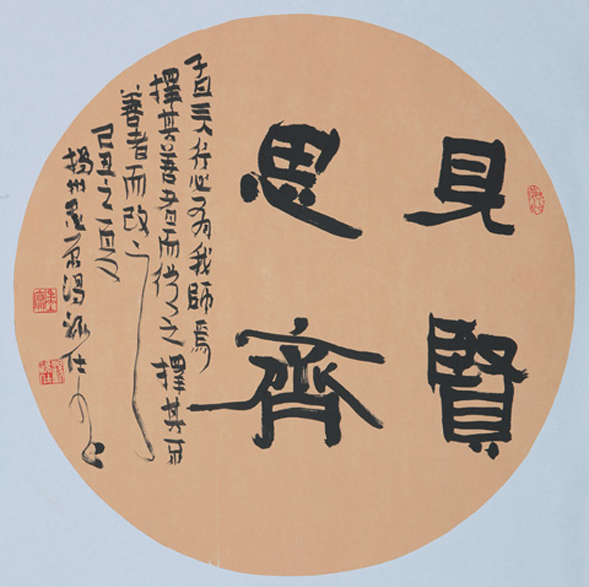 見賢
思齊
子曰三人行必有我師焉
擇其善者而從之擇其不
善者而改之
己丑之夏
揚州